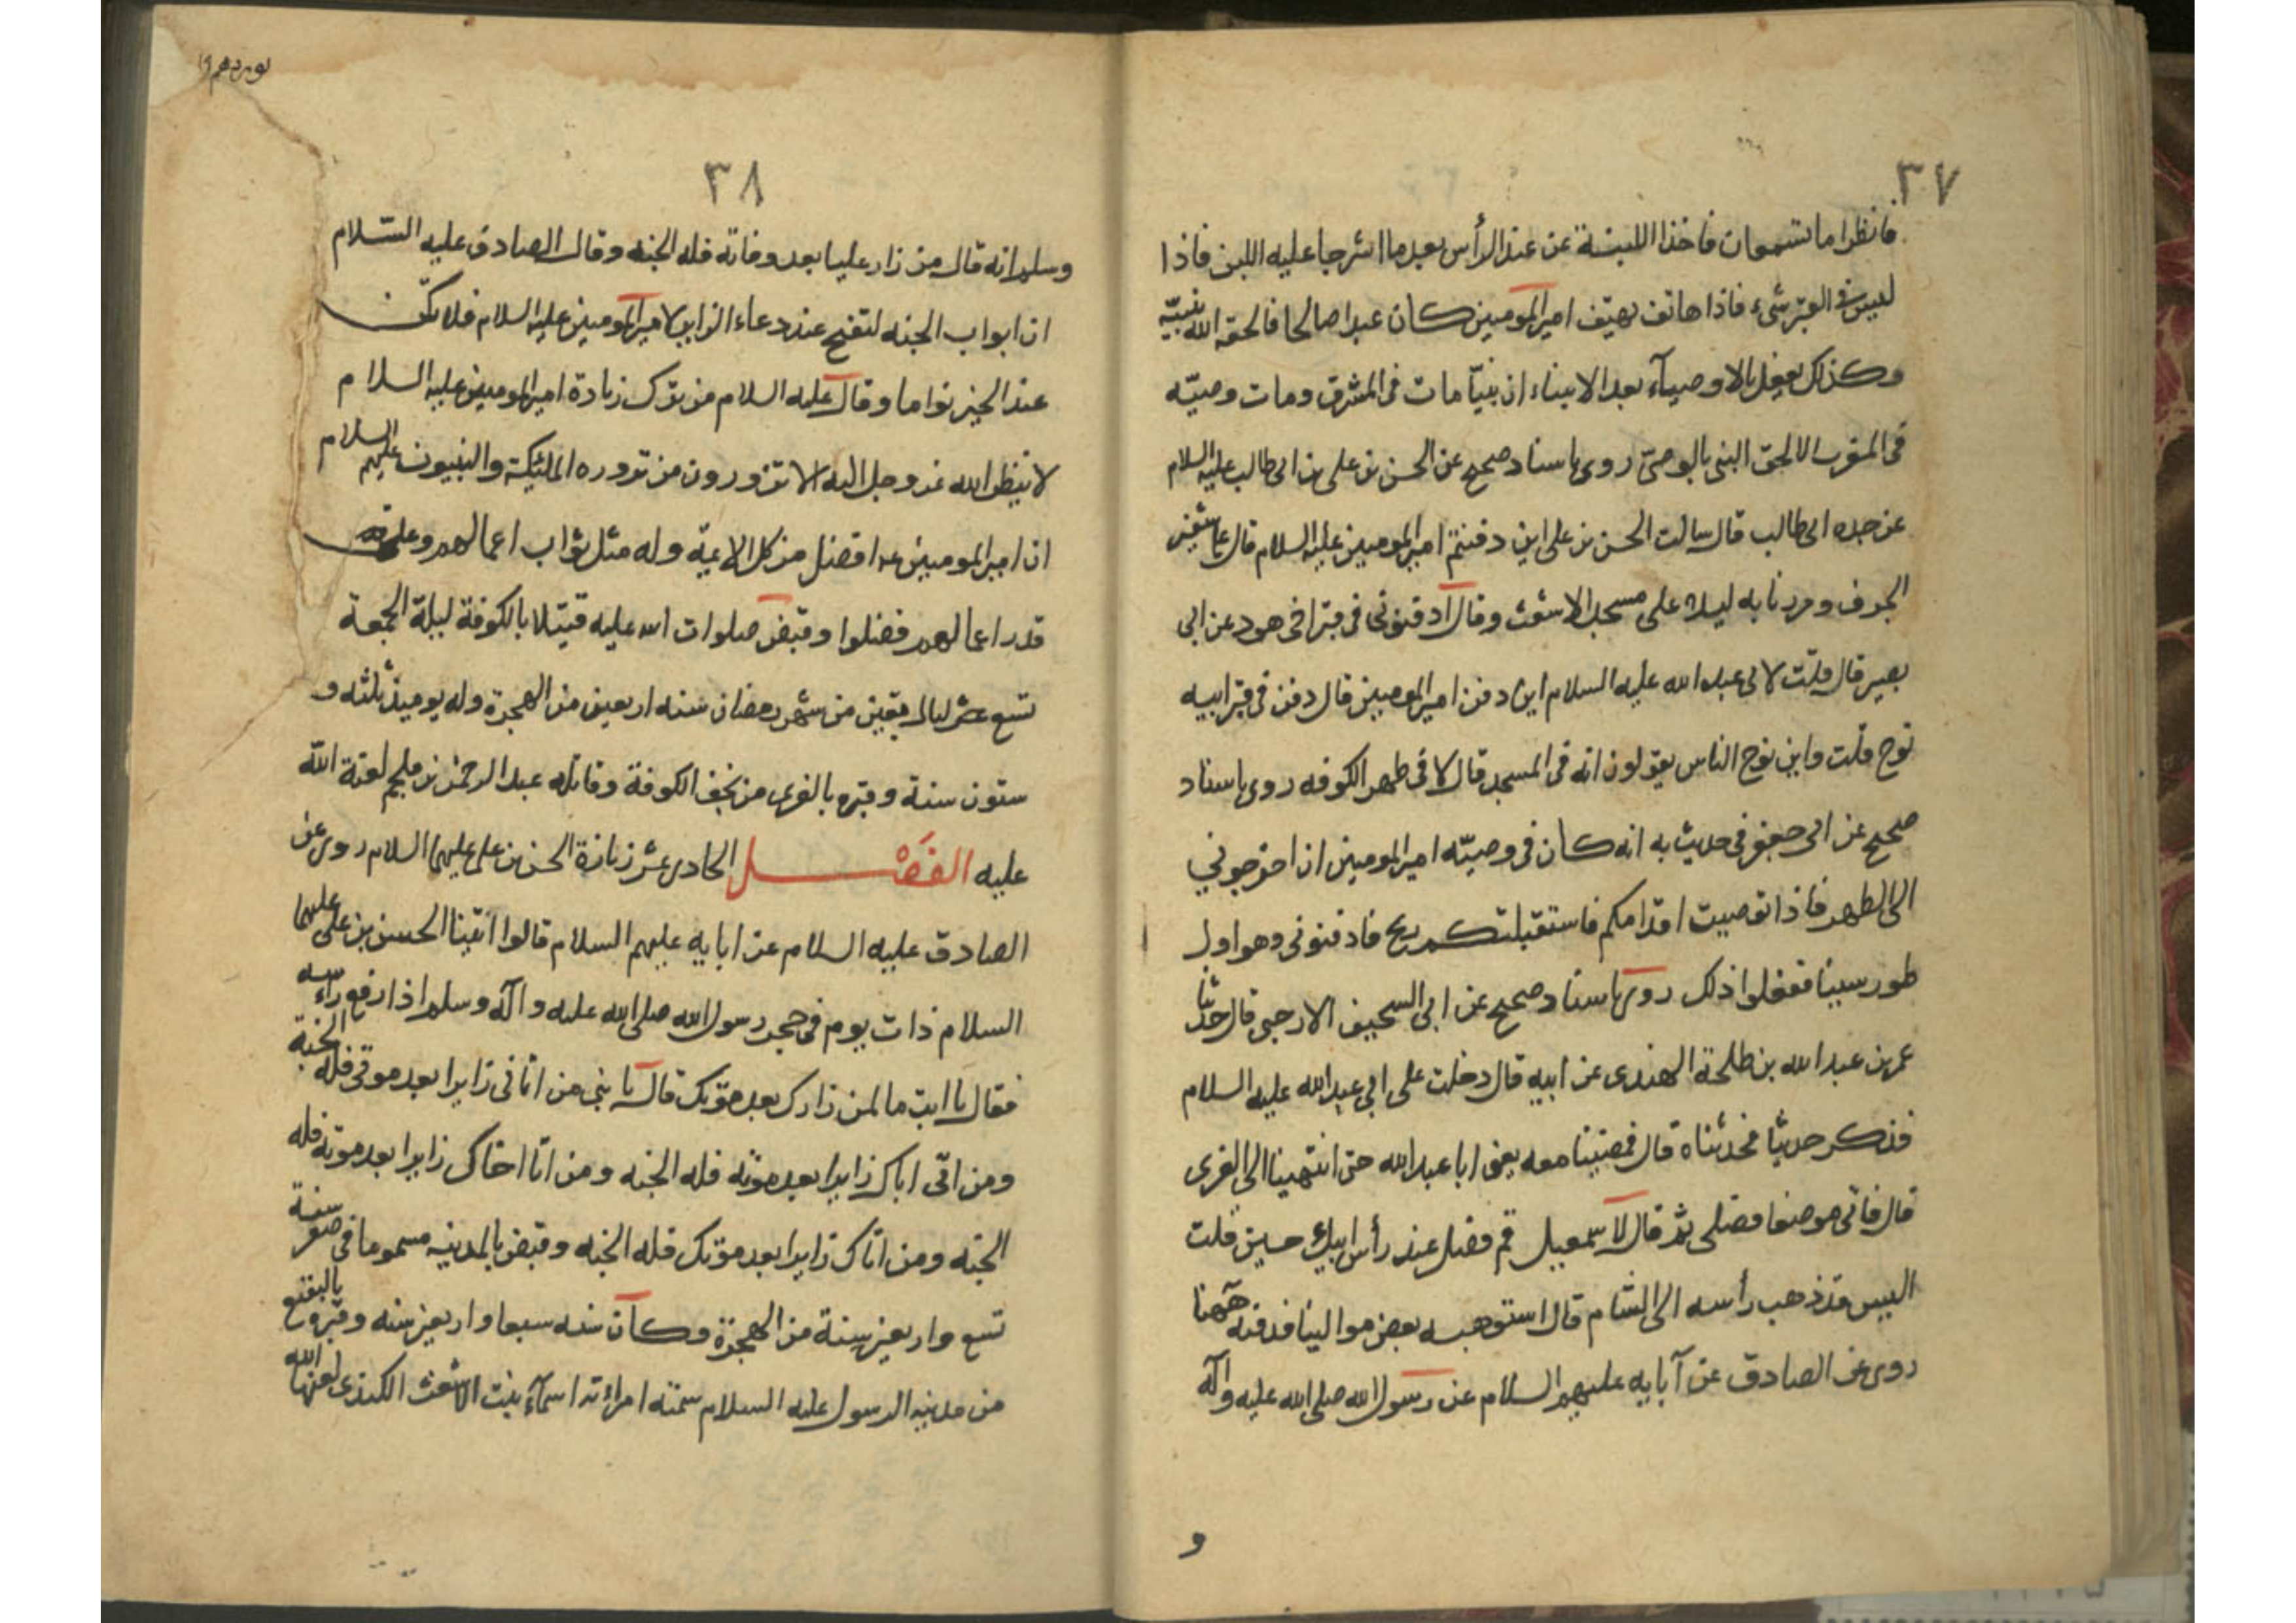 ٣٧
فانظرا ما تسمعان فاخذا اللبنة عن عند الرأس بعد ما اشرجا عليه اللبن فاذا
ليس فى القبر شىء فاذا هاتف يهتف امير المومنين كان عبدا صالحا فالحقه الله بنبيّه
وكذلك يفعل بالاوصيآء بعد الانبياء ان نبيّا مات فى المشرق ومات وصيّه
فى المغرب لالحق النبى بالوصىّ روى باسناد صحيح عن الحسن بن على بن ابى طالب عليه السلام
عن جده ابى طالب قال سالت الحسن بن على اين دفنتم امير المومنين عليه السلام قال على شفير
الجرف ومررنا به ليلا على مسجد الاشعث وقال ادفنونى فى قبر اخى هود عن ابى
بصير قال قلت لابى عبد الله عليه السلام اين دفن امير المومنين قال دفن فى قبر ابيه
نوح قلت واين نوح الناس يقولون انه فى المسجد قال لا فى ظهر الكوفه روى باسناد
صحيح عن ابى جعفر فى حديث به انه كان فى وصيّه امير المومنين ان اخرجونى
الى الظهر فاذا تصوبت اقدامكم فاستقبلتكم ريح فادفنونى وهو اول
طور سينا ففعلوا ذلك روى باسناد صحيح عن ابى السحيف الارجبى قال حدّثنا
عمر بن عبد الله بن طلحة الهندى عن ابيه قال دخلت على ابى عبد الله عليه السلام
فذكر حديثا فحدثناه قال فمضينا معه يعنى ابا عبد الله حتى انتهينا الى الغرى
قال فاتى موضعا فصلى ثم قال لاسمعيل قم فصل عند رأس ابيك حسين قلت
اليس قد ذهب رأسه الى الشام قال استوهبه بعض موالينا فدفنه هٓهنا
روى عن الصادق عن آبايه عليهم السلام عن رسول الله صلى الله عليه وآله
و
٣٨
وسلم انه قال من زار عليا بعد وفاته فله الجنه وقال الصادق عليه السّلام
ان ابواب الجنه لتفتح عند دعاء الزاير لامير المومنين عليه السلام فلا تكن
عند الخير نواما وقال عليه السلام من ترك زيارة امير المومنين عليه السلام
لا ينظر الله عز وجل اليه الا تزورون من تزوره الملئكة والنبيون عليهم السلام
ان امير المومنين عه افضل من كل الائمة وله مثل ثواب اعمالهم وعلى
قدر اعمالهم فضلوا وقبض صلوات الله عليه قتيلا بالكوفة ليلة الجمعة
تسع عشر ليال بقين من شهر رمضان سنه اربعين من الهجرة وله يوميذ ثلثه و
ستون سنة وقبره بالغرى من نجف الكوفة وقاتله عبد الرحمن بن ملجم لعنة الله
عليه الفَصْل الحادى عشر زيارة الحسن بن على عليهما السلام روى عن
الصادق عليه السلام عن ابايه عليهم السلام قالوا اتينا الحسن بن على عليهما
السلام ذات يوم فى حجر رسول الله صلى الله عليه وآله وسلم اذا رفع رأسه
فقال يا ابت ما لمن زارك بعد موتك قال يا بنى من اتانى زايرا بعد موتى فله الجنة
ومن اتى اباك زايرا بعد موته فله الجنه ومن اتا اخاك زايرا بعد موته فله
الجنه ومن اتاك زايرا بعد موتك فله الجنه وقبض بالمدينه مسموما فى صفر سنة
تسع واربعين سنة من الهجرة وكان سنه سبعا واربعين سنه وقبره بالبقيع
من مدينه الرسول عليه السلام سمته امراته اسمآء بنت الاشعث الكندى لعنها الله